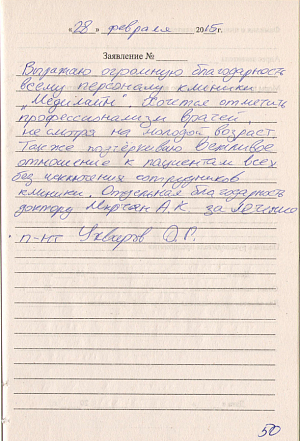 «28» февраля 2015г.
Заявление №
Выражаю огромную благодарность
всему персоналу клиники
„Медилайн". Хочется отметить
профессионализм врачей
не смотря на молодой возраст.
Также подчёркиваю вежливое
отношение к пациентам всех
без исключения сотрудников
клиники. Отдельная благодарность
доктору А.К. за лечение
п-нт О.Г.
50